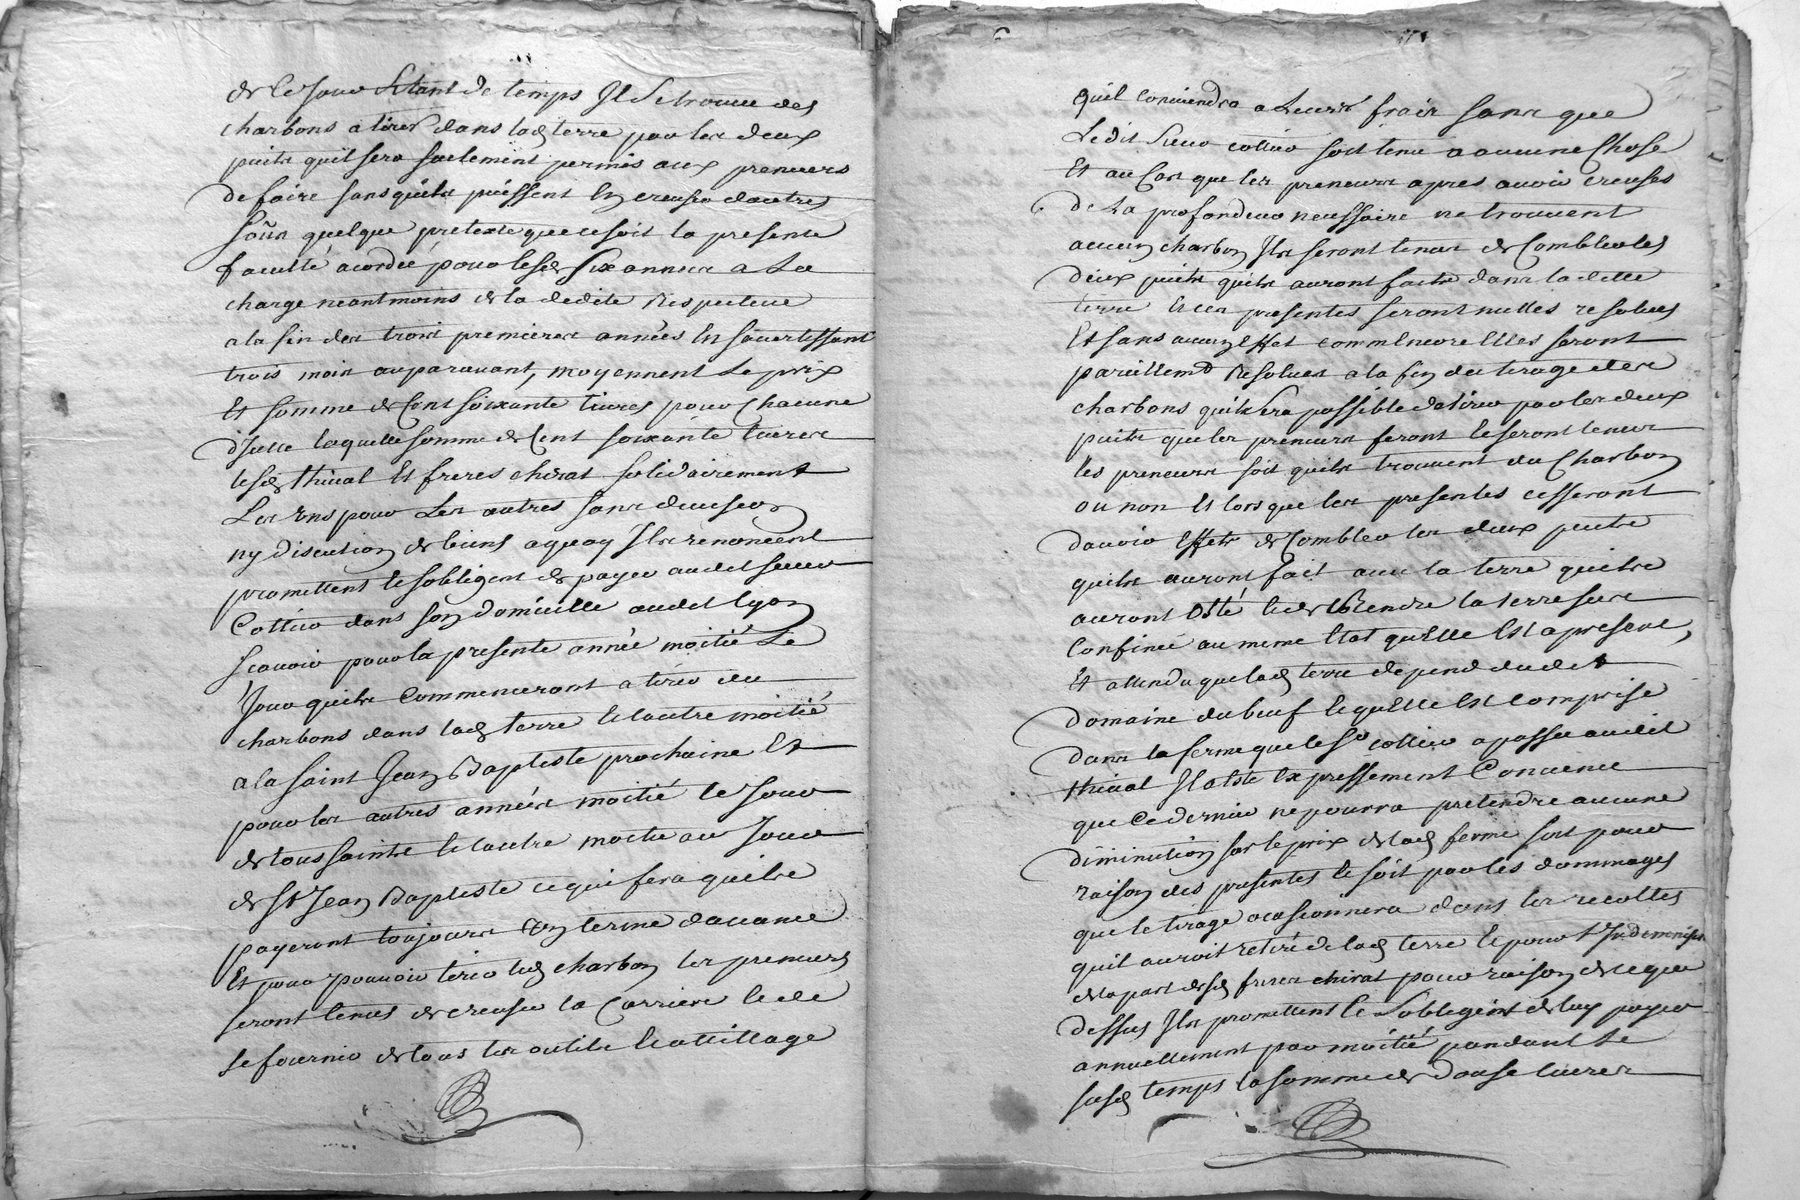 de ce jour sitant de temps Il se trouve des
charbons a tirer dans lad terre par les deux
puits quil sera seulement permis aux preneurs
de faire sans quils puissent en creuser dautres
sous quelque pretexte que ce soit la presente
faculté acordée pour lesd six années a la
charge neantmoins de la dedite respective
a la fin des trois premieres années en savertissant
trois mois auparavant, moyennent le prix
Et somme de Cent soixante livres pour Chacune
d'Icelle laquelle somme de Cent soixante livres
lesd thival Et freres chirat solidairement
Les uns pour Les autres sans division
ny discution de biens a quoy Ils renoncent
promettent et sobligent de payer audit sieur
Cottier dans son domicille audit lyon
scavoir pour la presente année moitié Le
Jour quils commenceront a tirer du
charbons dans lad terre et lautre moitié
a la saint Jean Baptiste prochaine Et
pour les autres années moitié le Jour
de toussaints et lautre moitié au Jour
de St Jean Baptiste ce qui fera quils
payeront toujours un terme davance
Et pour pouvoir tirer led charbon les preneurs
seront tenus de creuser la Carriere et de
se fournir de tous les outils et attillage
quil conviendra a Leurs frais sans que
Ledit Sieur cottier soit tenu a aucune Chose
Et au Cas que les preneurs apres avoir creusés
de La profondeur necessaire ne trouvent
aucun charbon Ils seront tenus de Combler les
deux puits quils auront faits dans la ditte
terre et ces presentes seront nulles resolues
Et sans aucun Effet comm Encore Elles seront
pareillemt Resolues a la fin du tirage des
charbons quils sera possible de tirer par les deux
puits que les preneurs feront et seront tenus
les preneurs soit quils trouvent du Charbon
ou non Et lors que les presentes cesseront
davoir Effets de Combler les deux puits
quils auront fait avec la terre quils
auront osté et de Rendre la terre sur
Confinée au meme Etat quelle Est a present,
Et attendu que lad terre depend dudit
domaine du beuf et quelle Est Comprise
dans la ferme que le Sr cottier a passée audit
thival Il a Esté Expressement Convenue
que Ce dernier ne pourra pretendre aucune
diminution sur le prix de lad ferme soit pour
raison des presentes et soit par les dommages
que le tirage ocasionnera dans les recoltes
quil auroit retiré de lad terre et pour l'Indemniser
de la part desd freres chirat pour raison de ce que
dessus Ils promettent et Sobligent de luy payer
annuellement par moitié pendant Le
susd temps la somme de douse livres